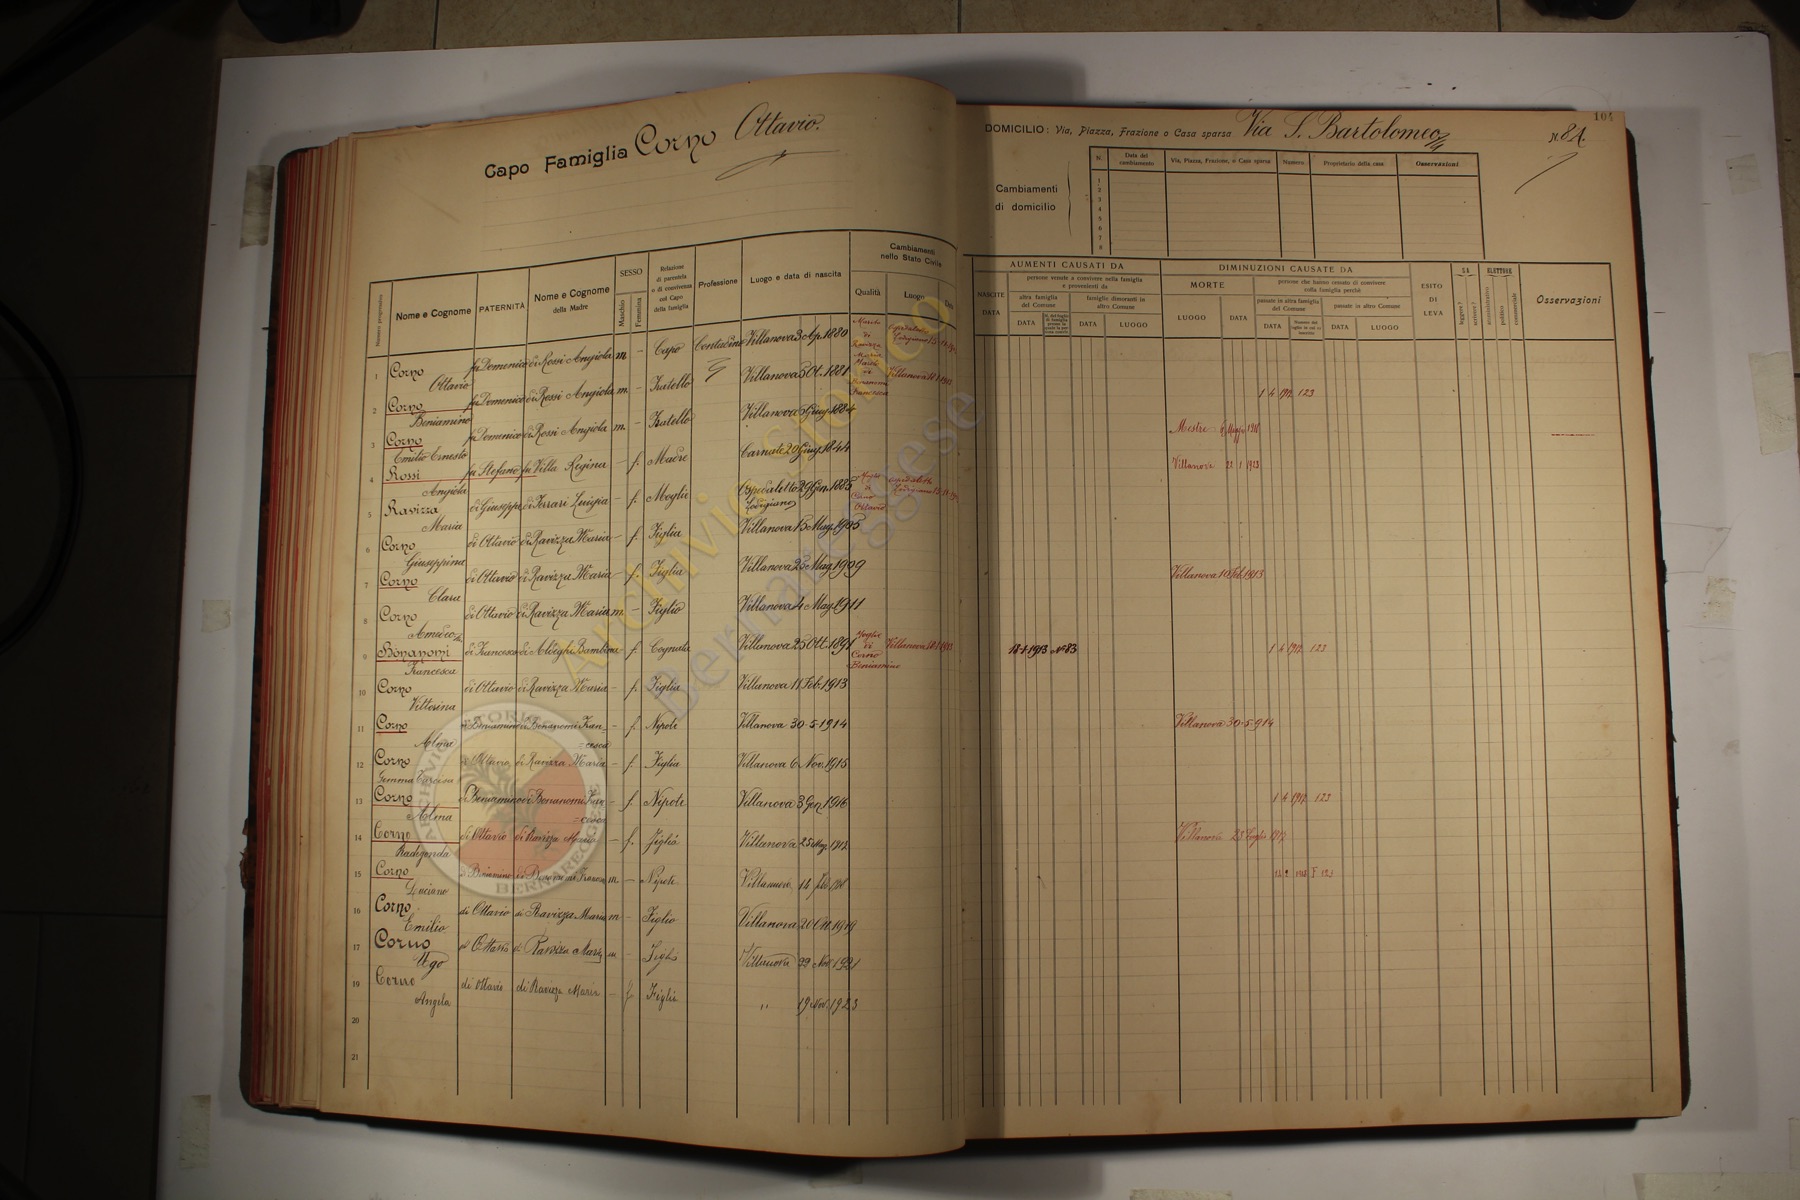 104
Capo Famiglia Corno Ottavio.
DOMICILIO: Via, Piazza, Frazione o Casa sparsa Via S. Bartolomeo N. 8A.
Cambiamenti
di domicilio
N. Data del cambiamento Via, Piazza, Frazione, o Casa sparsa Numero Proprietario della casa Osservazioni
1
2
3
4
5
6
7
8
Numero progressivo Nome e Cognome PATERNITÀ Nome e Cognome della Madre SESSO Maschio Femmina Relazione di parentela o di convivenza col Capo della famiglia Professione Luogo e data di nascita Cambiamenti nello Stato Civile Qualità Luogo Data
AUMENTI CAUSATI DA
NASCITE DATA
persone venute a convivere nella famiglia e provenienti da
altra famiglia del Comune DATA
famiglie dimoranti in altro Comune DATA LUOGO
DIMINUZIONI CAUSATE DA
MORTE LUOGO DATA
persone che hanno cessato di convivere colla famiglia perchè
passate in altra famiglia del Comune DATA
passate in altro Comune DATA LUOGO
ESITO DI LEVA
SA leggere? scrivere?
ELETTORE amministrativo politico commerciale
Osservazioni
1 Corno Ottavio fu Domenico di Rossi Angiola m - Capo Contadino Villanova 3 Ap. 1880 Marito di Ravizza Maria
2 Corno Beniamino fu Domenico di Rossi Angiola m. - Fratello Villanova 5 Ot. 1881 Marito di Bonanomi Francesca Villanova 1 4 123
3 Corno Emilio Ernesto fu Domenico di Rossi Angiola m. - Fratello Villanova 5 Giug. 1884 Mestre
4 Rossi Angiola fu Stefano fu Villa Regina - f. Madre Carnate 20 Giug. 1844 Villanova 22 1 1923
5 Ravizza Maria di Giuseppe di Ferrari Luigia - f. Moglie Ospedaletto Lodigiano 29 Gen. 1885 Moglie di Corno Ottavio Ospedaletto Lodigiano
6 Corno Giuseppina di Ottavio di Ravizza Maria - f. Figlia Villanova 15 Mag. 1905
7 Corno Clara di Ottavio di Ravizza Maria - f. Figlia Villanova 25 Mag. 1909 Villanova 10 Feb. 1913
8 Corno Amedeo di Ottavio di Ravizza Maria m. - Figlio Villanova 4 Mag. 1911
9 Bonanomi Francesca di Francesco di Aldeghi Bambina - f. Cognata Villanova 25 Ott. 1891 Moglie di Corno Beniamino Villanova 18-1-1913 N° 83 1 4 123
10 Corno Vittorina di Ottavio di Ravizza Maria - f. Figlia Villanova 11 Feb. 1913
11 Corno Alma di Beniamino di Bonanomi Francesca - f. Nipote Villanova 30-5-1914 Villanova 30-5-914
12 Corno Gemma Tarcisa di Ottavio di Ravizza Maria - f. Figlia Villanova 6 Nov. 1915
13 Corno Alma di Beniamino di Bonanomi Francesca - f. Nipote Villanova 3 Gen. 1916 1 4 123
14 Corno Radegonda di Ottavio di Ravizza Maria - f. Figlia Villanova 25 Mag. Villanova 23
15 Corno Luciano di Beniamino di Bonanomi m - Nipote Villanova 14 123
16 Corno Emilio di Ottavio di Ravizza Maria m - Figlio Villanova 20 Ott. 1919
17 Corno Ugo di Ottavio di Ravizza Maria m - Figlio Villanova 22 Nov. 1921
19 Corno Angela di Ottavio di Ravizza Maria - f Figlia " 19 Nov. 1923
20
21
Archivio Storico
Bernareggese
ARCHIVIO STORICO BERNAREGGESE